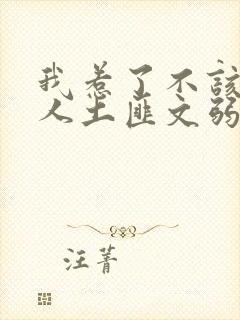 我惹了不该
人土匪文弱
汪菁